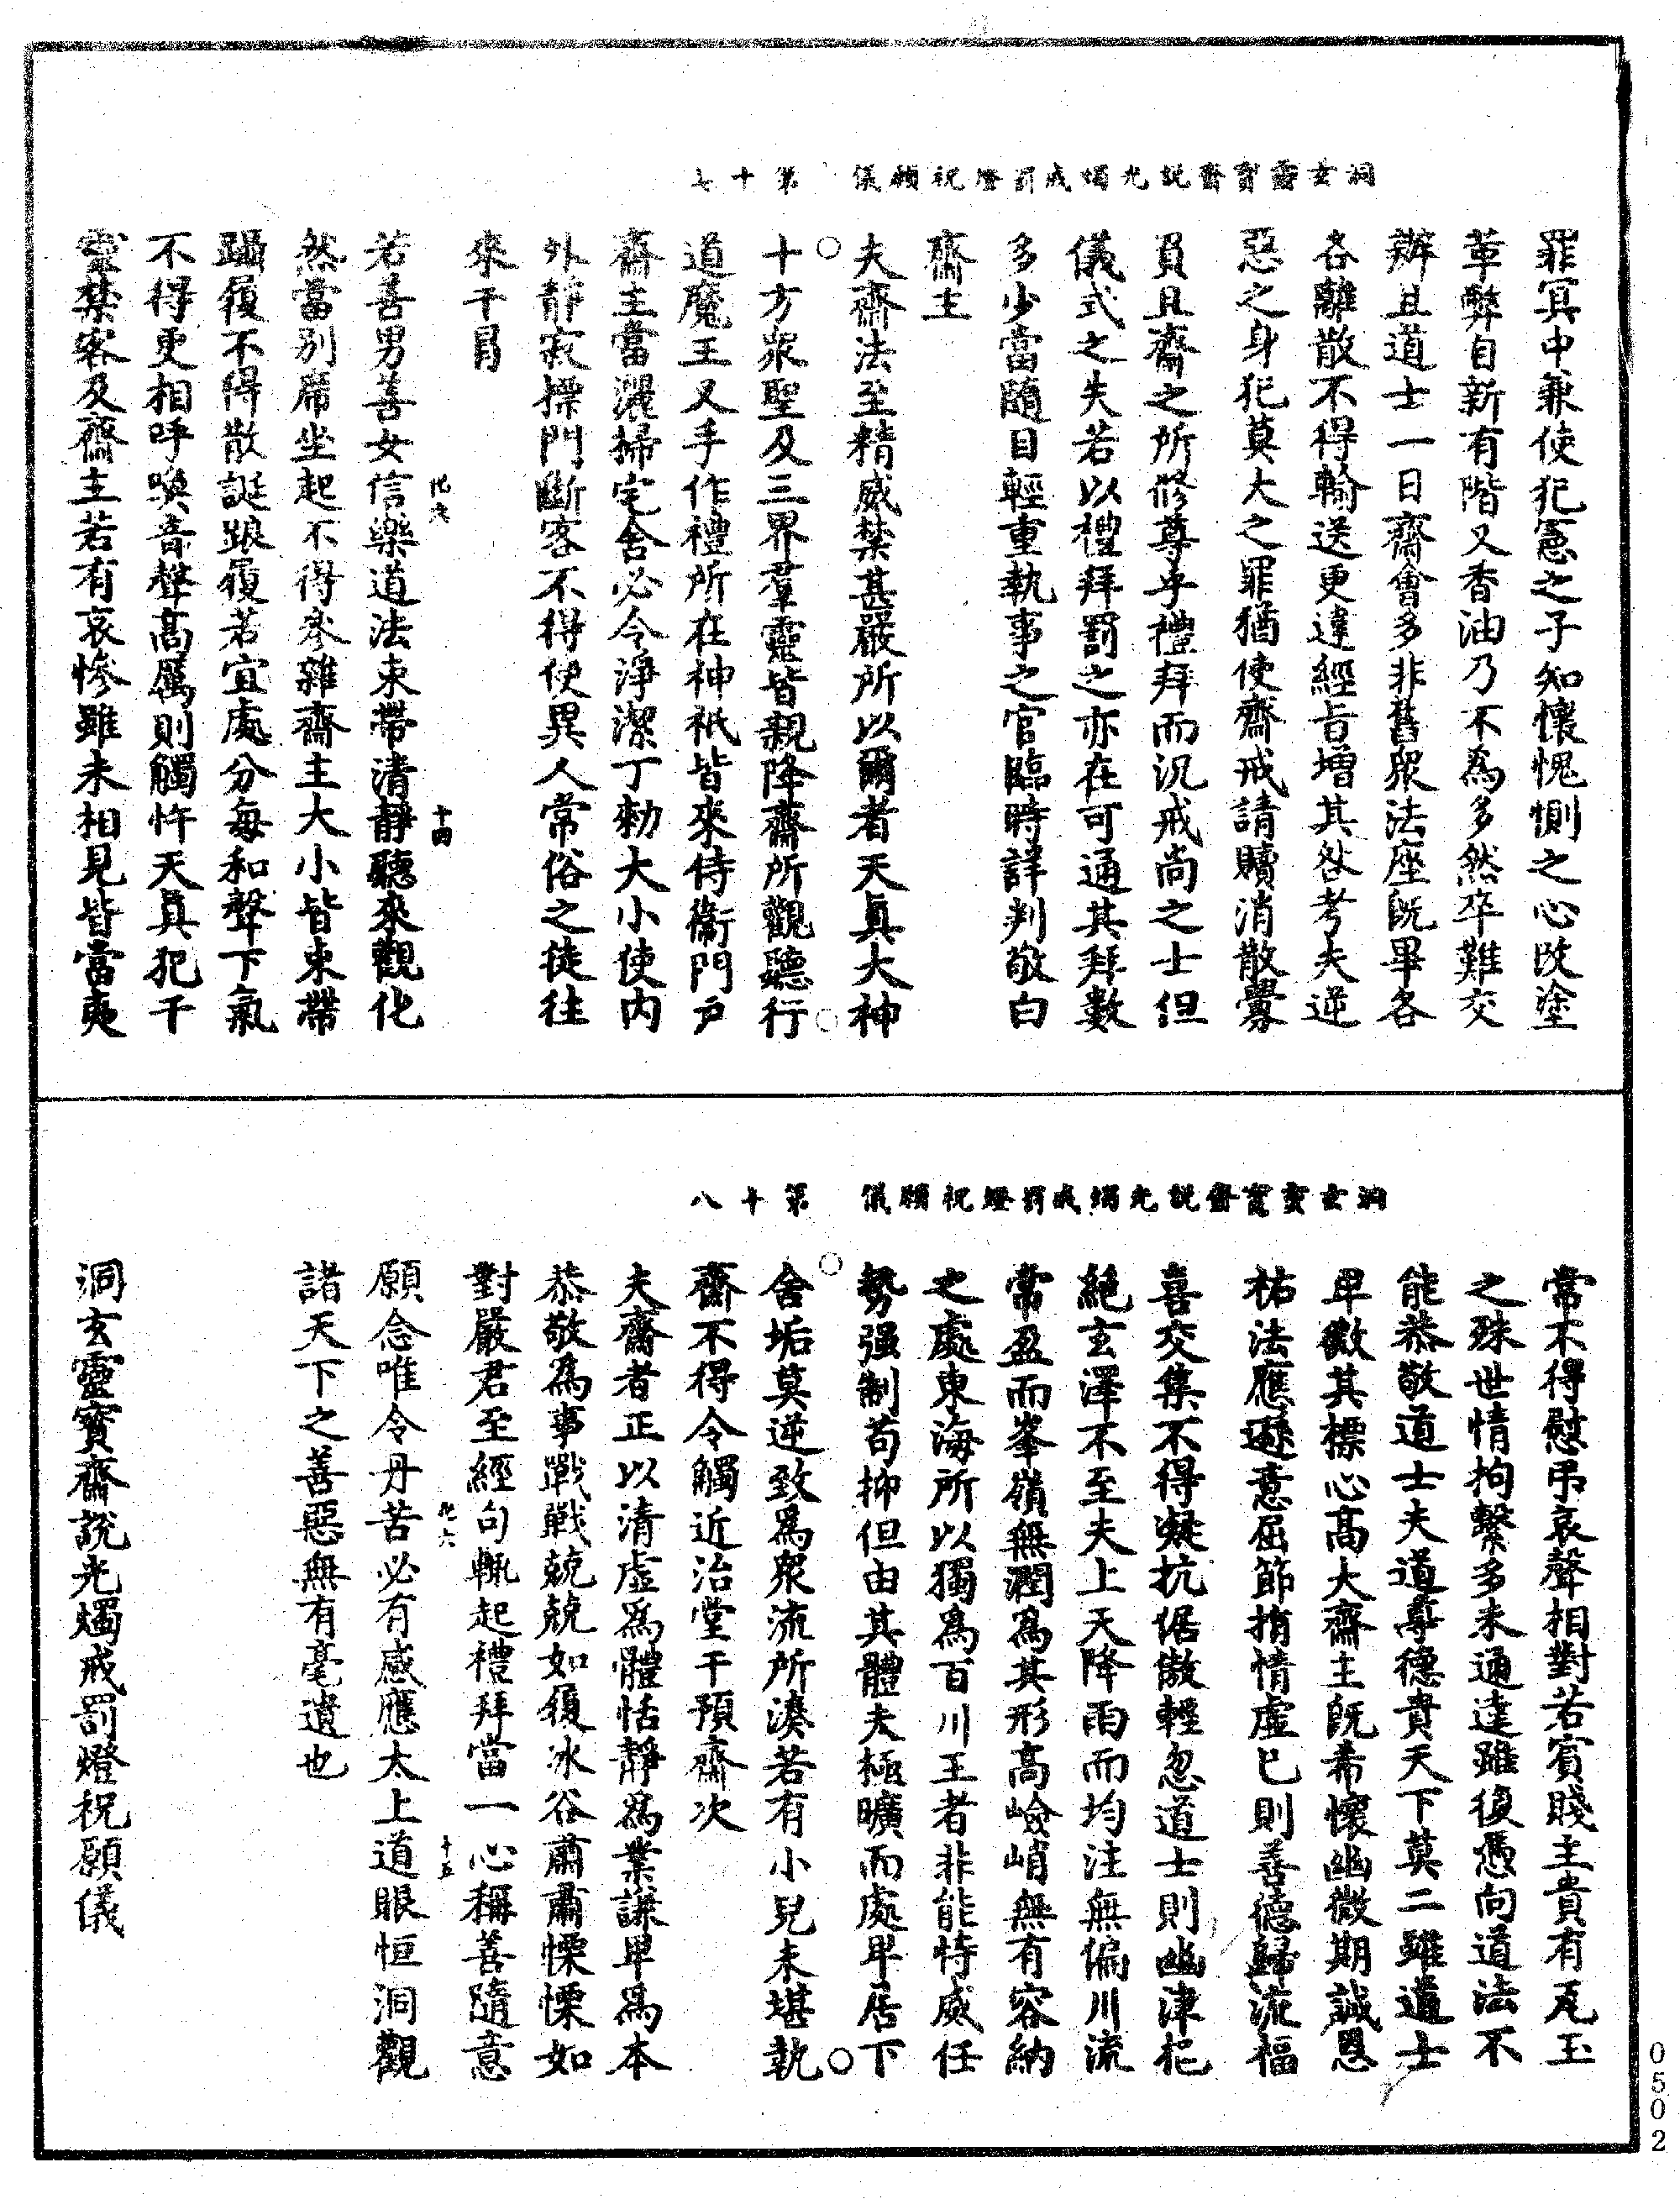 洞玄靈寶齋說光燭戒罰燈祝願儀　第十七
罪冥中兼使犯憲之子知懷愧惻之心改塗
革弊自新有階又香油乃不為多然卒難交
辦且道士一日齋會多非舊眾法座既畢各
各離散不得輸送更違經旨增其咎考夫逆
惡之身犯莫大之罪猶使齋戒請贖消散釁
負且齋之所修尊乎禮拜而況戒尚之士但
儀式之失若以禮拜罰之亦在可通其拜數
多少當隨目輕重執事之官臨時詳判敬白
齋主
夫齋法至精威禁甚嚴所以爾者天真大神
十方眾聖及三界羣靈皆親降齋所觀聽行
道魔王叉手作禮所在神祇皆來侍衛門戶
齋主當灑掃宅舍必令淨潔丁勑大小使內
外靜寂摽門斷客不得使異人常俗之徒往
來干冐
若善男善女信樂道法束帶清靜聽來觀化
然當別席坐起不得參雜齋主大小皆束帶
躡履不得散誕踉履若宜處分每和聲下氣
不得更相呼喚音聲高厲則觸忤天真犯干
靈禁客及齋主若有哀慘雖未相見皆當夷
化六
十四
洞玄靈寶齋說光燭戒罰燈祝願儀　第十八
常不得慰弔哀聲相對若賓賤主貴有瓦玉
之殊世情拘繫多未通達雖復憑向道法不
能恭敬道士夫道尊德貴天下莫二雖道士
卑微其標心高大齋主既希懷幽微期誠恩
祐法應遜意屈節捐情虛已則善德歸流福
喜交集不得凝抗倨傲輕忽道士則幽津杜
絕玄澤不至夫上天降雨而均注無偏川流
常盈而峯嶺無潤為其形高嶮峭無有容納
之處東海所以獨為百川王者非能恃威任
勢强制苟抑但由其體大極曠而處卑居下
舍垢莫逆致為眾流所湊若有小兒未堪執
齋不得令觸近治堂干預齋次
夫齋者正以清虛為體恬靜為業謙卑為本
恭敬為事戰戰兢兢如履冰谷肅肅慄慄如
對嚴君至經句輒起禮拜當一心稱善隨意
願念唯令丹苦必有感應太上道眼恒洞觀
諸天下之善惡無有毫遺也
化六
十五
洞玄靈寶齋說光燭戒罰燈祝願儀
0502